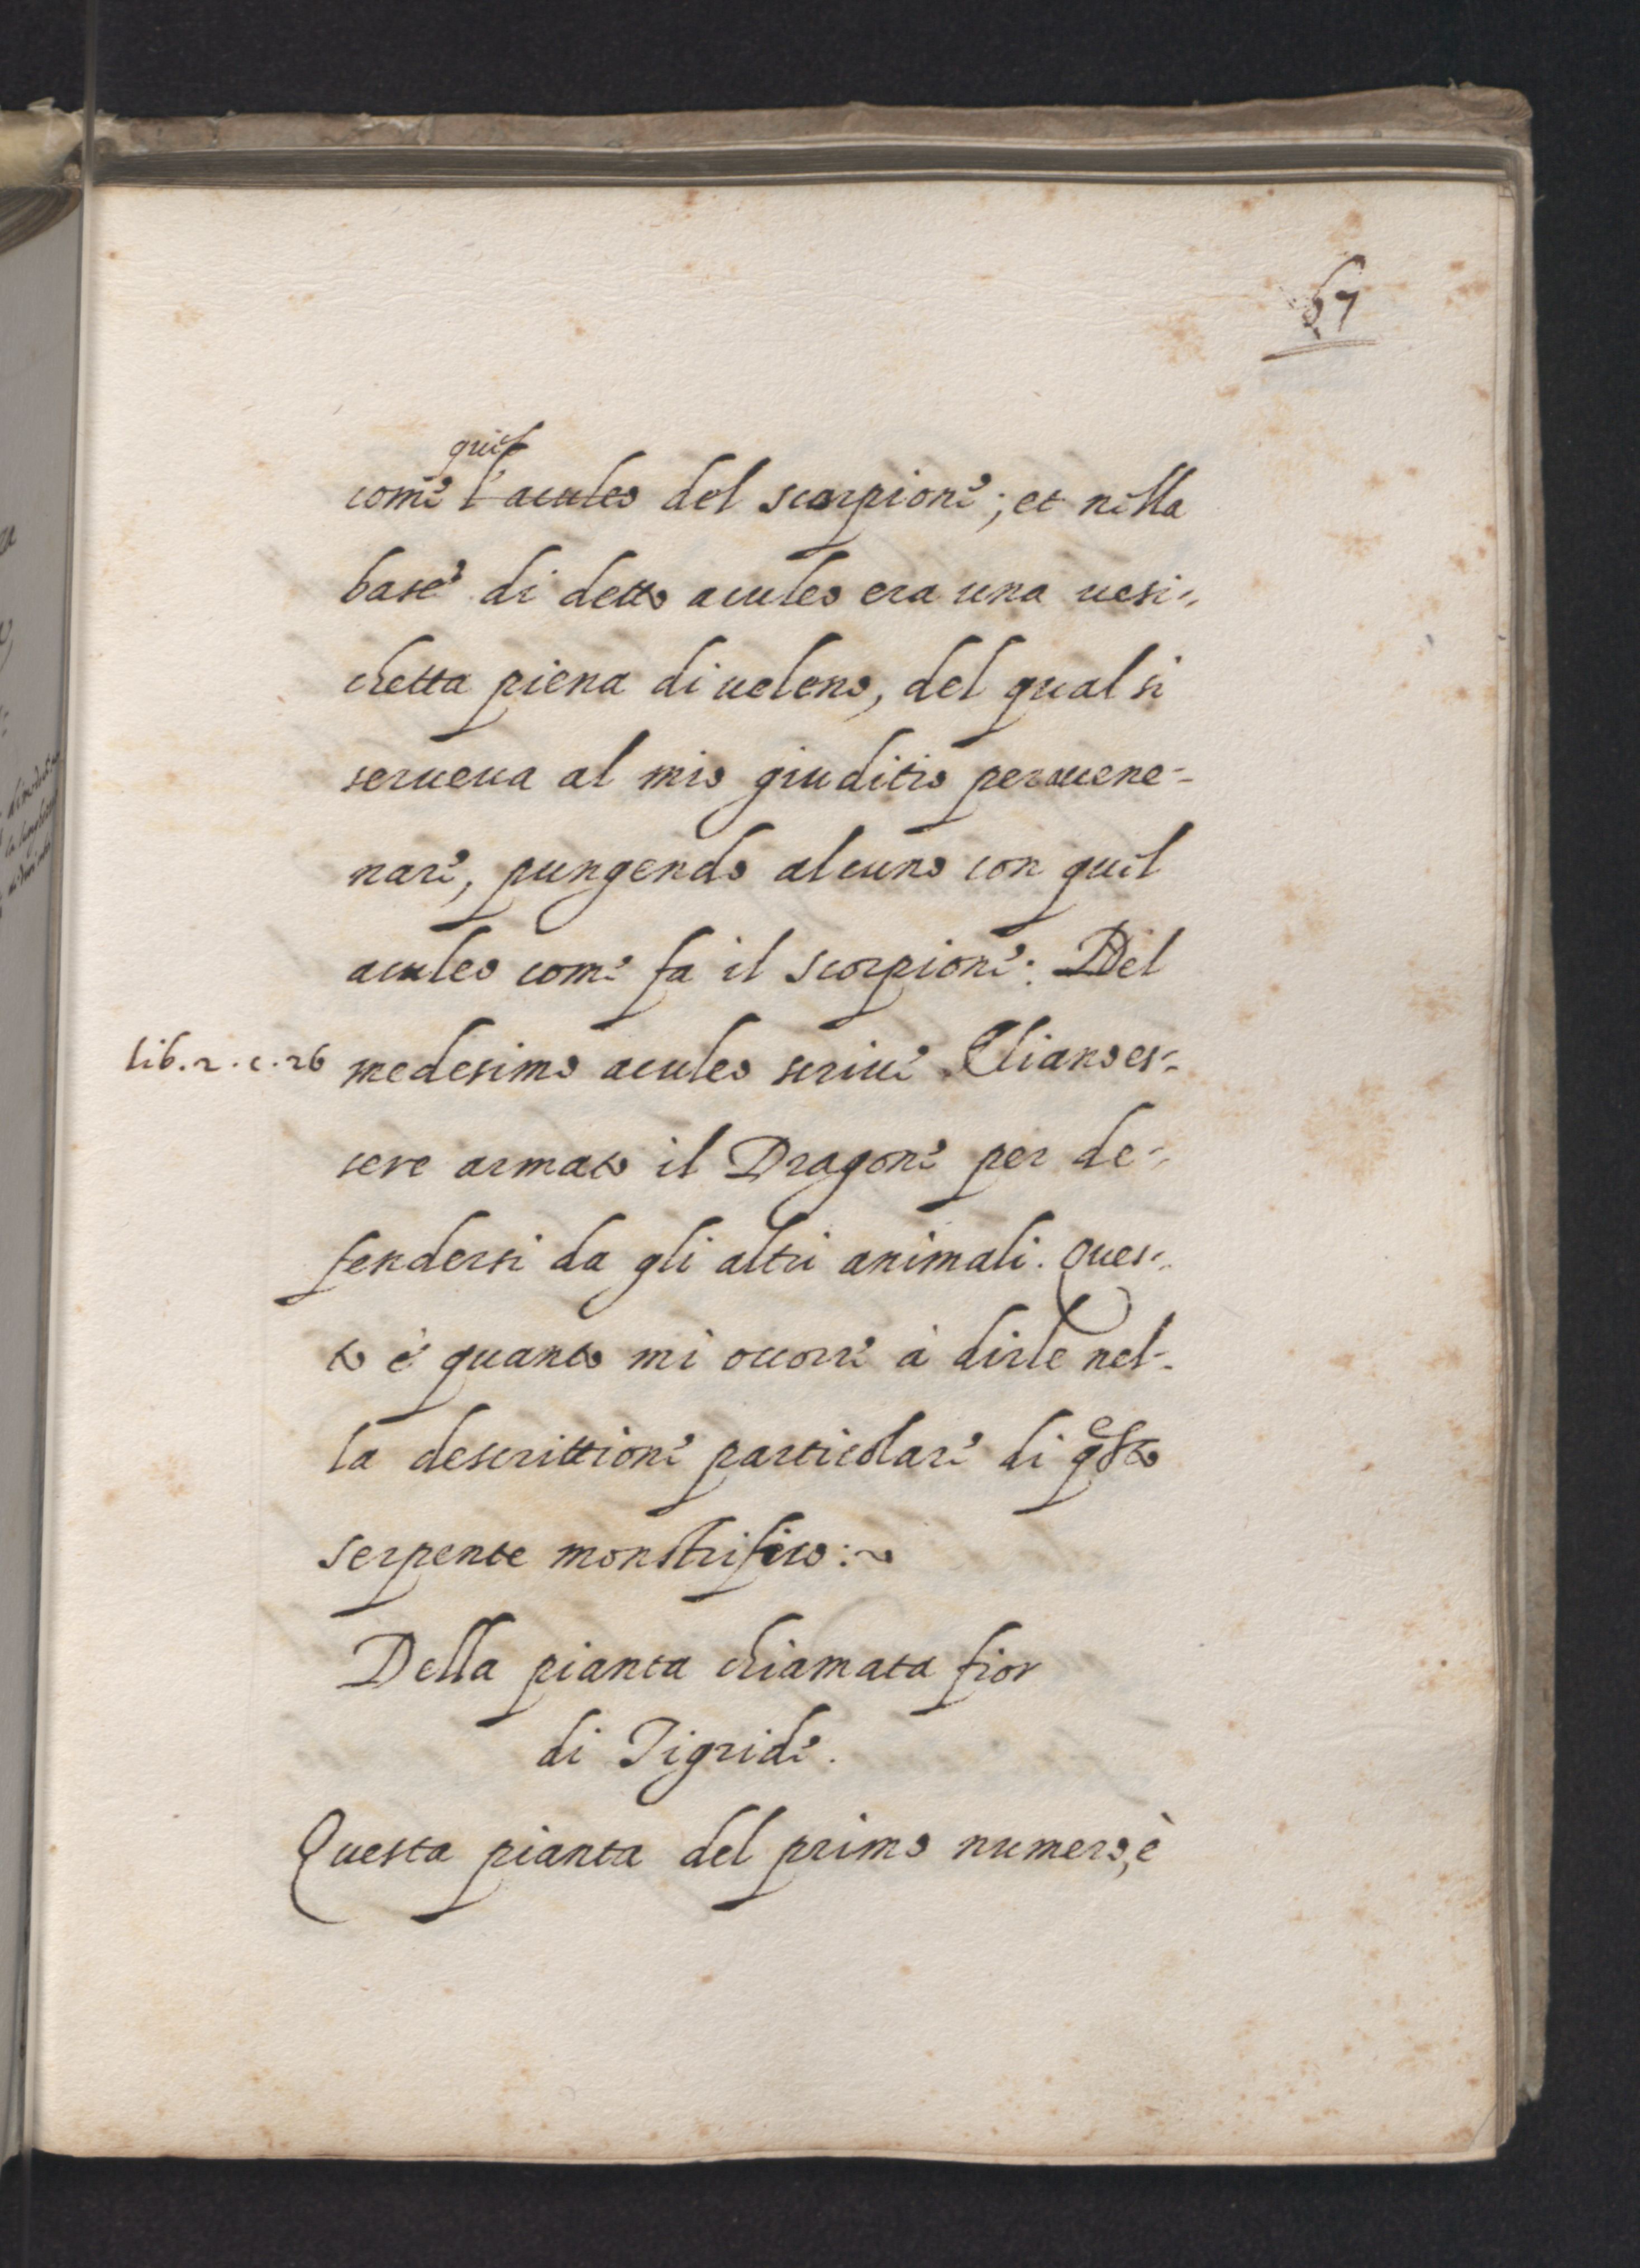 67
quel
come l'aculeo del scorpione; et nella
base di detto aculeo era una uesi-
chetta piena di ueleno, del qual si
serueua al mio giuditio per auene-
nare, pungendo alcuno con quel
aculeo come fa il scorpione: Del
lib. 2. c. 26 medesimo aculeo scriue Eliano es-
sere armato il Dragone per de-
fendersi da gli altri animali. Ques-
to è quanto mi occorre à dirle nel-
la descrittione particolare di qsto
serpente monstrifico:~
Della pianta chiamata fior
di Tigride.
Questa pianta del primo numero, è